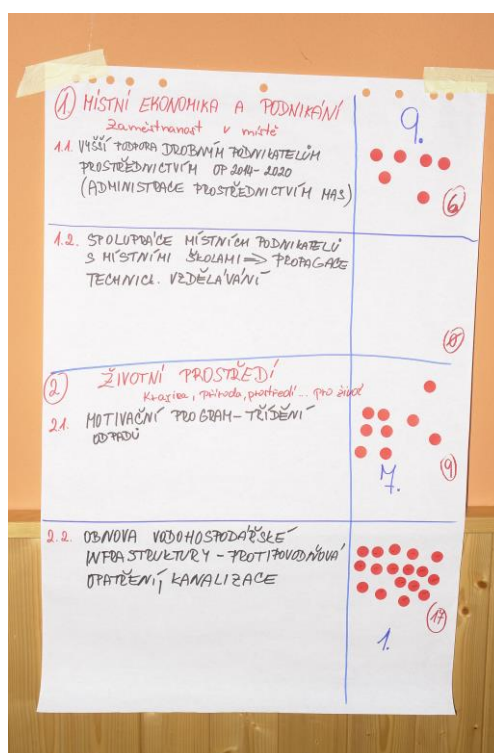 ① MÍSTNÍ EKONOMIKA A PODNIKÁNÍ
Zaměstnanost v místě
9.
1.1. VYŠŠÍ PODPORA DROBNÝM PODNIKATELŮM
PROSTŘEDNICTVÍM OP 2014-2020
(ADMINISTRACE PROSTŘEDNICTVÍM MAS)
6
1.2. SPOLUPRÁCE MÍSTNÍCH PODNIKATELŮ
S MÍSTNÍMI ŠKOLAMI => PROPAGACE
TECHNICK. VZDĚLÁVÁNÍ
0
② ŽIVOTNÍ PROSTŘEDÍ
Krajina, příroda, prostředí... pro život
2.1. MOTIVAČNÍ PROGRAM - TŘÍDĚNÍ
ODPADŮ
9
7.
2.2. OBNOVA VODOHOSPODÁŘSKÉ
INFRASTRUKTURY - PROTIPOVODŇOVÁ
OPATŘENÍ, KANALIZACE
17
1.